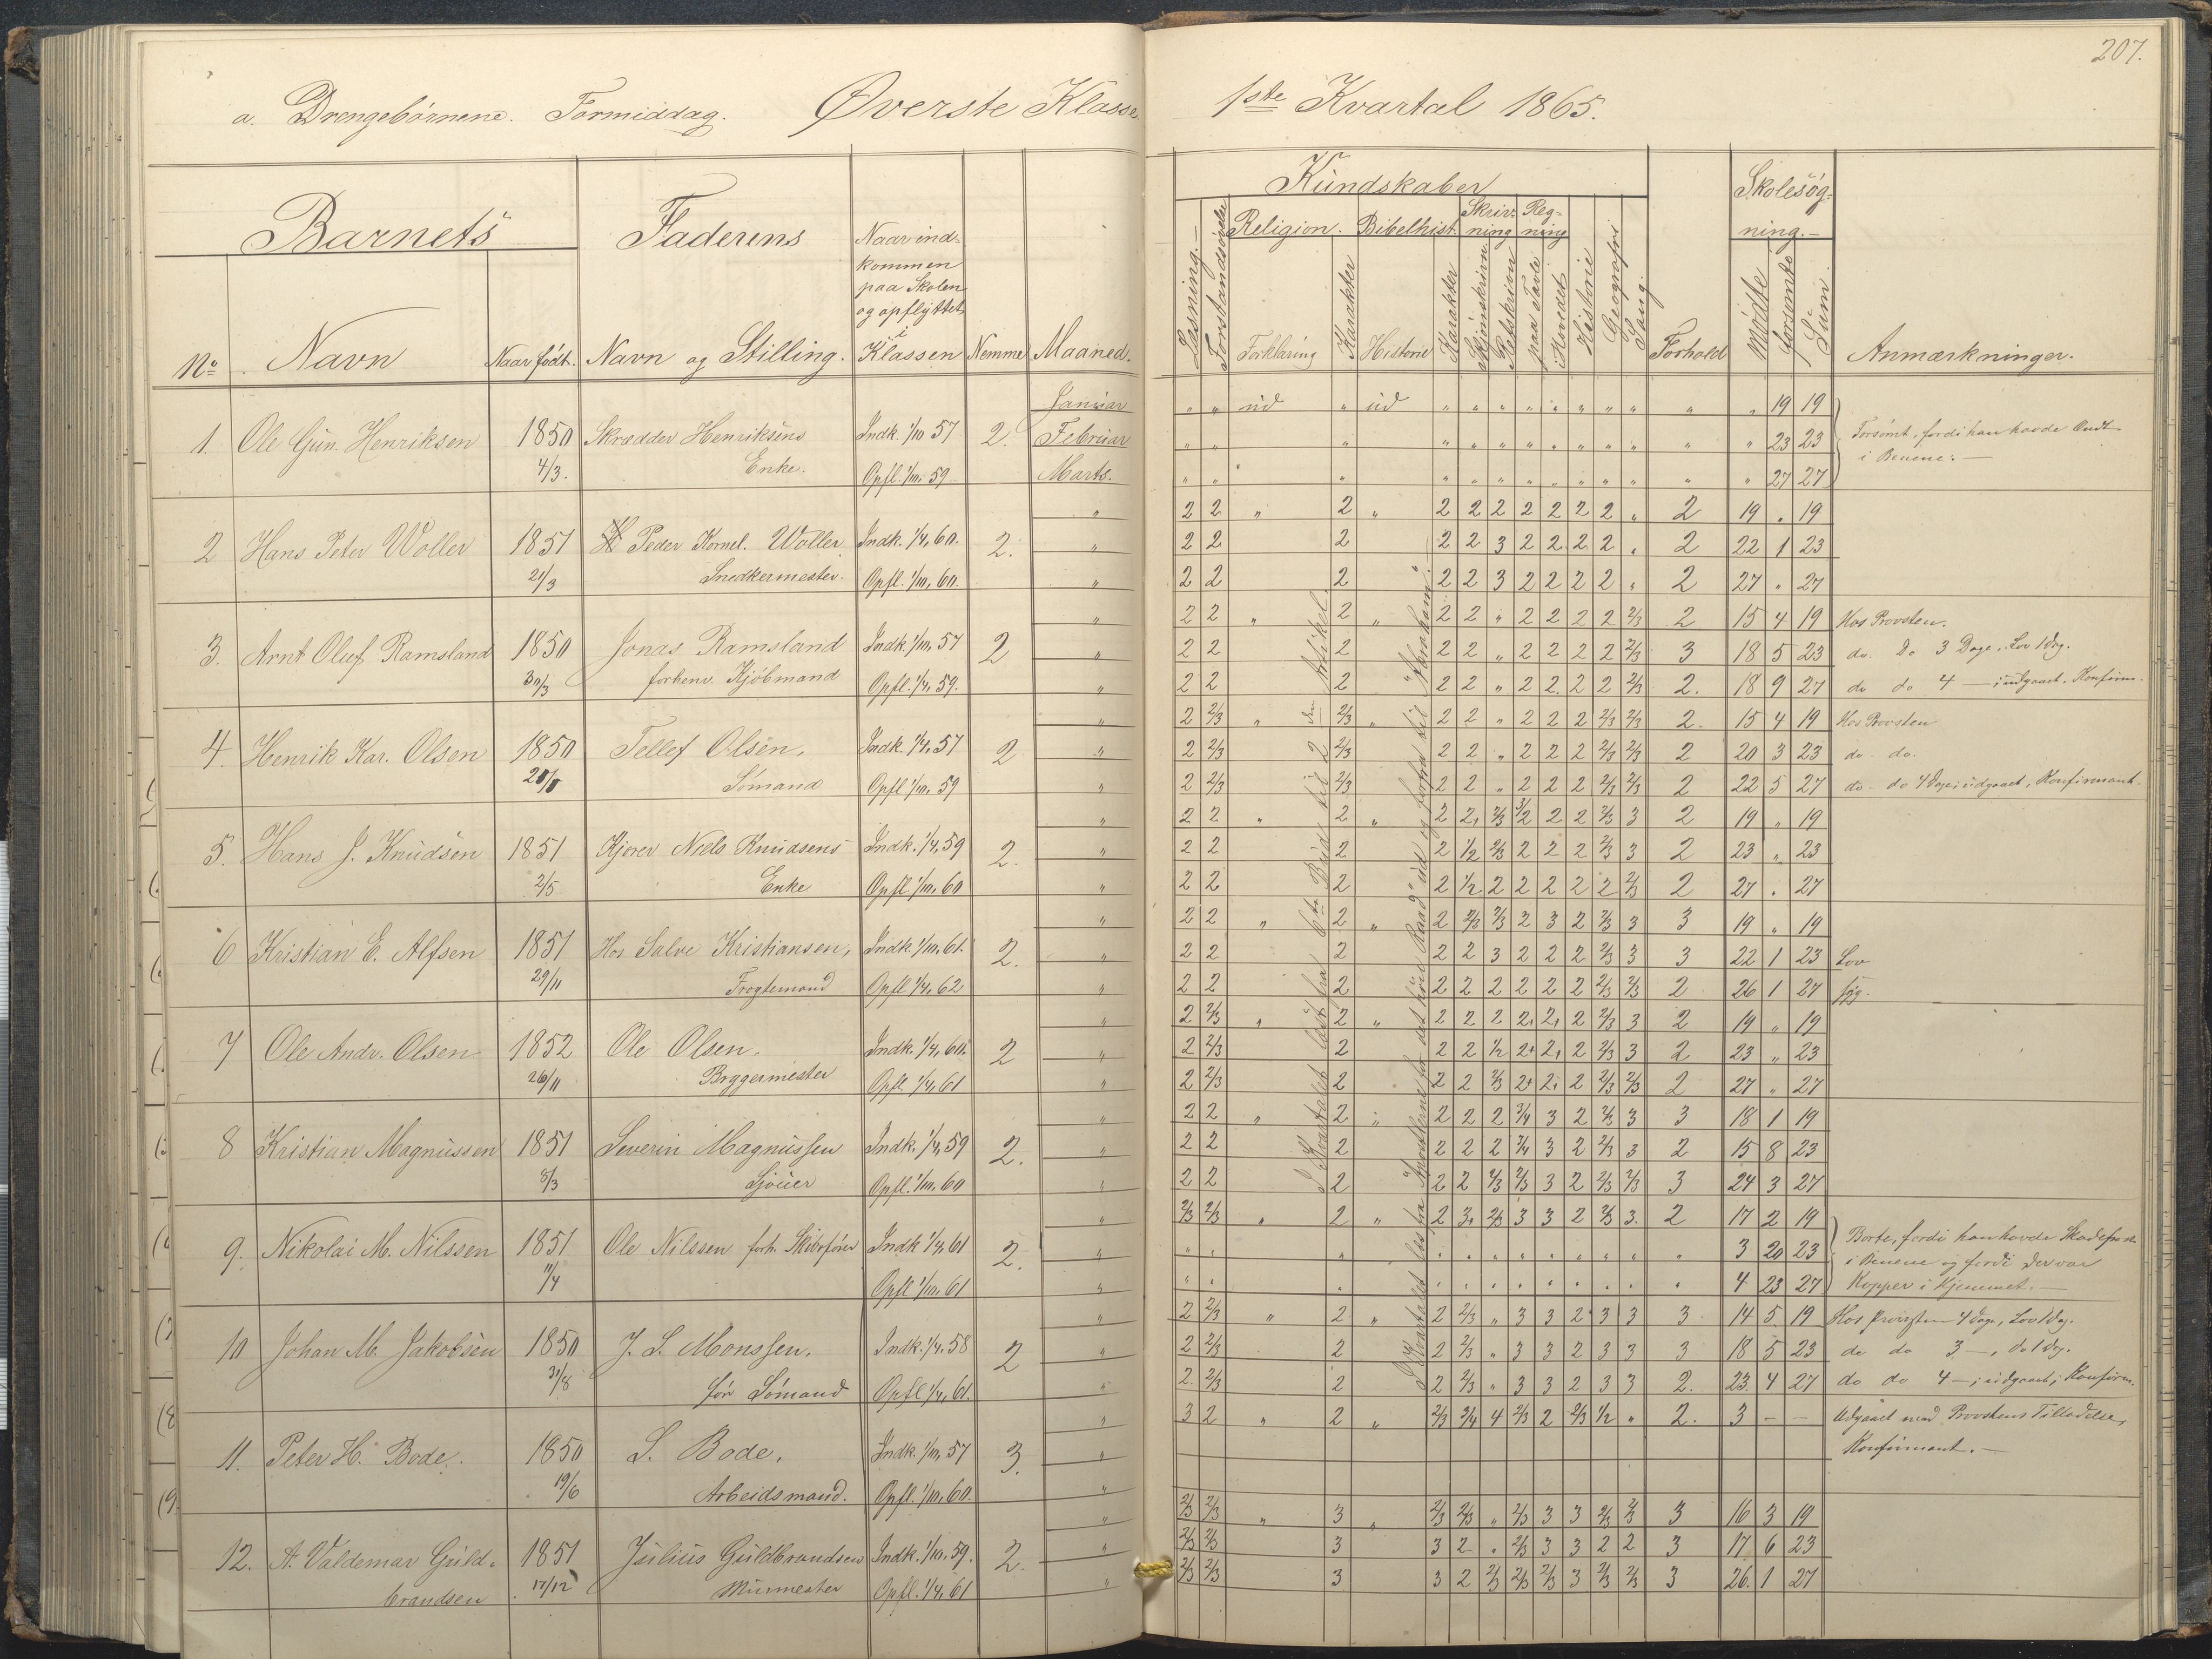 207.
a. Drengebørnene. Formiddag. Øverste Klasse 1ste Kvartal 1865.
Barnets Faderens Naar ind-
kommen
paa Skolen
og opflyttet
i
No Navn Naar født. Navn og Stilling. Klassen Nemme Maaned.
Kundskaber Skolesøg-
ning.-
Religion. Bibelhist. Skriv-
ning Reg-
ning
Læsning.- Forstandsøvelse Forklaring Karakter Historie Karakter Skjønskrivn Retskrivn paa Tavle Hovedet Historie Geografi Sang. Forhold Mødte forsømte Sum Anmærkninger.
Januar " " ud " ud " " " " " " " " " " 19 19
1. Ole Gun. Henriksen 1850 Skrædder Henriksens Indk. 1/10 57 2. Februar " " " " " " " " " " " " " 23 23 Forsømt, fordi han havde Ondt
4/3. Enke. Opfl. 1/10. 59 Marts. " " " " " " " " " " " " " 27 27 i Benene.-
" 2 2 " 2 " 2 2 2 2 2 2 2 " 2 19 " 19
2 Hans Peter Woller 1851 Peder Kornel. Woller Indk. 1/4, 60. 2. " 2 2 2 2 2 3 2 2 2 2 " 2 22 1 23
21/3 Snedkermester. Opfl. 1/10, 60. " 2 2 2 2 2 3 2 2 2 2 " 2 27 " 27
" 2 2 " 2 " 2 2 " 2 2 2 2 2/3 2 15 4 19 Hos Provsten.
3. Arnt Oluf Ramsland 1850 Jonas Ramsland Indk. 1/10, 57 2 " 2 2 2 2 2 " 2 2 2 2 2/3 3 18 5 23 do. do 3 Dage, Lov 1 dag.
30/3 forhenv. Kjøbmand Opfl. 1/4, 59. " 2 2 2 2 2 " 2 2 2 2 2/3 2. 18 9 27 do do 4 — ; udgaaet. Konfirm.
" 2 2/3 " 2/3 " 2 2 " 2 2 2 2/3 2/3 2. 15 4 19 Hos Provsten
4. Henrik Kar. Olsen 1850 Tellef Olsen, Indk. 1/4, 57 2 " 2 2/3 2/3 2 2 " 2 2 2 2/3 2/3 2 20 3 23 do. do.
Sømand Opfl. 1/10, 59 " 2 2/3 2/3 2 2 " 2 2 2 2/3 2/3 2 22 5 27 do - do 4 Dage; udgaaet, Konfirmant.
" 2 2 " 2 " 2 2, 2/3 3/2 2 2 2/3 3 2 19 " 19
5. Hans J. Knudsen 1851 Kjører Niels Knudsens Indk. 1/4, 59 2. " 2 2 2 2 1/2 2/3 2 2 2 2/3 3 2 23 " 23
2/5 Enke Opfl. 1/10. 60 " 2 2 2 2 1/2 2 2 2 2 2 2/3 2 27 " 27
" 2 2 " 2 " 2 2/3 2/3 2 3 2 2/3 3 3 19 " 19
6 Kristian E. Alfsen 1851 Hos Salve Kristiansen, Indk 1/10. 61. 2. " 2 2 2 2 2 3 2 2 2 2/3 3 3 22 1 23 Lov
29/11 Fragtemand Opfl. 1/4, 62 " 2 2 2 2 2 2 2 2 2 2/3 2/3 2 26 1 27 syg.
" 2 2/3 " 2 " 2 2 2 2, 2, 2 2/3 3 2 19 " 19
7 Ole Andr. Olsen 1852 Ole Olsen. Indk. 1/4, 60. 2 " 2 2/3 2 2 2 1/2 2+ 2, 2 2/3 3 2 23 " 23
26/11 Bryggermester Opfl. 1/4, 61 " 2 2/3 2 2 2 2/3 2+ 2, 2 2/3 2/3 2 27 " 27
" 2 2 " 2 " 2 2 2 3/4 3 2 2/3 3 3 18 1 19
8 Kristian Magnussen 1851 Severin Magnussen Indk. 1/4, 59 2. " 2 2 2 2 2 2 3/4 3 2 2/3 3 2 15 8 23
8/3 Sjouer Opfl. 1/10. 60 " 2 2 2 2 2 2/3 2/3 3 2 2/3 2/3 3 24 3 27
" 2/3 2/3 " 2 " 2 3, 2/3 3 3 2 2/3 3. 2 17 2 19
9. Nikolai M. Nilssen 1851 Ole Nilssen forh. Skibsfører Indk 1/4, 61 2. " " " " " " " " " " " " " 3 20 23 Borte, fordi han havde Skade
11/4 Opfl 1/10. 61 " " " " " " " " " " " " " 4 23 27 i Benene og fordi der var
Kopper i Hjemmet.-
" 2 2/3 " 2 " 2 2/3 " 3 3 2 3 3 3 14 5 19 Hos Provsten 4 dage, Lov 1 dag.
10 Johan M. Jakobsen 1850 J. S. Monssen, Indk. 1/4. 58 2 " 2 2/3 2 2 2/3 " 3 3 2 3 3 3 18 5 23 do do 3 —, do 1 dag.
31/8 før Sømand Opfl 1/4, 61. " 2. 2/3 2 2 2/3 " 3 3 2 3 3 2. 23. 4 27 do do 4 — ; udgaaet; Konfirm.
" 3 2 " 2 " 2/3 3/4 4 2/3 2 2/3 1/2 " 2. 3 – – Udgaaet med Provstens Tilladelse,
11. Peter H. Bode. 1850 S. Bode, Indk. 1/10, 57 3. " Konfirmant.-
19/6 Arbeidsmand. Opfl. 1/10, 60. "
" 2/3 2/3 " 3 " 2/3 2/3 " 2/3 3 3 2/3 2/3 3 16 3 19
12. A. Valdemar Guld- 1851 Julius Guldbrandsen Indk. 1/10. 59. 2. " 2/3 2/3 3 3 2 " 2/3 3 3 2 2 3 17 6 23
brandsen 17/12 Murmester Opfl. 1/4, 61 " 2/3 2/3 3 3 2 2/3 2/3 2/3 3 2/3 2/3 3 26. 1 27
I Kvartalet læst fra 6te Bud til 2den Artikel.
I Kvartalet læst fra "Apostlerne for det høie Raad" ud og forfra til "Abraham".